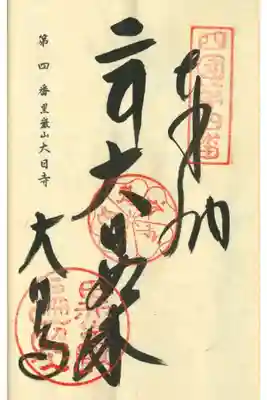 四國第四番
奉納
大日如来
大日寺
第四番黒巌山大日寺